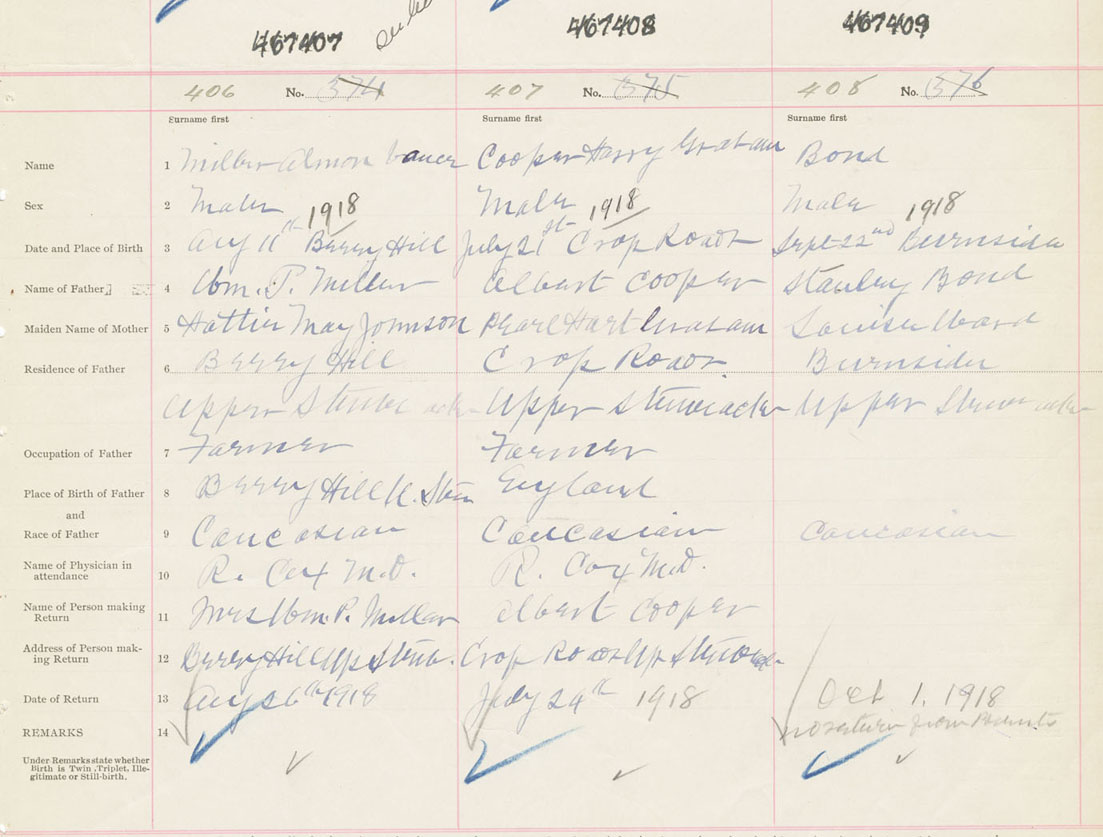 467407 467408 467409
406 No. 374 407 No. 375 408 No. 376
Surname first Surname first Surname first
Name 1 Miller Almon Cooper Harry Graham Bond
Sex 2 Male 1918 Male 1918 Male 1918
Date and Place of Birth 3 Aug 11th Berry Hill July 21st Crop Roads Sept 22nd Burnside
Name of Father 4 Wm. P. Miller Albert Cooper Stanley Bond
Maiden Name of Mother 5 Hattie May Johnson Pearl Hart Graham Louise Ward
Residence of Father 6 Berry Hill Crop Roads Burnside
Upper Stewiacke Upper Stewiacke Upper Stewiacke
Occupation of Father 7 Farmer Farmer
Place of Birth of Father 8 Berry Hill U. Stew England
and
Race of Father 9 Caucasian Caucasian Caucasian
Name of Physician in
attendance 10 R. Cox M.D. R. Cox M.D.
Name of Person making
Return 11 Mrs Wm. P. Miller Albert Cooper
Address of Person mak-
ing Return 12 Berry Hill Up Stew. Crop Roads Up Stewiacke
Date of Return 13 Aug 26th 1918 July 24th 1918 Oct 1. 1918
REMARKS 14 no return from Parents
Under Remarks state whether
Birth is Twin, Triplet, Ille-
gitimate or Still-birth.